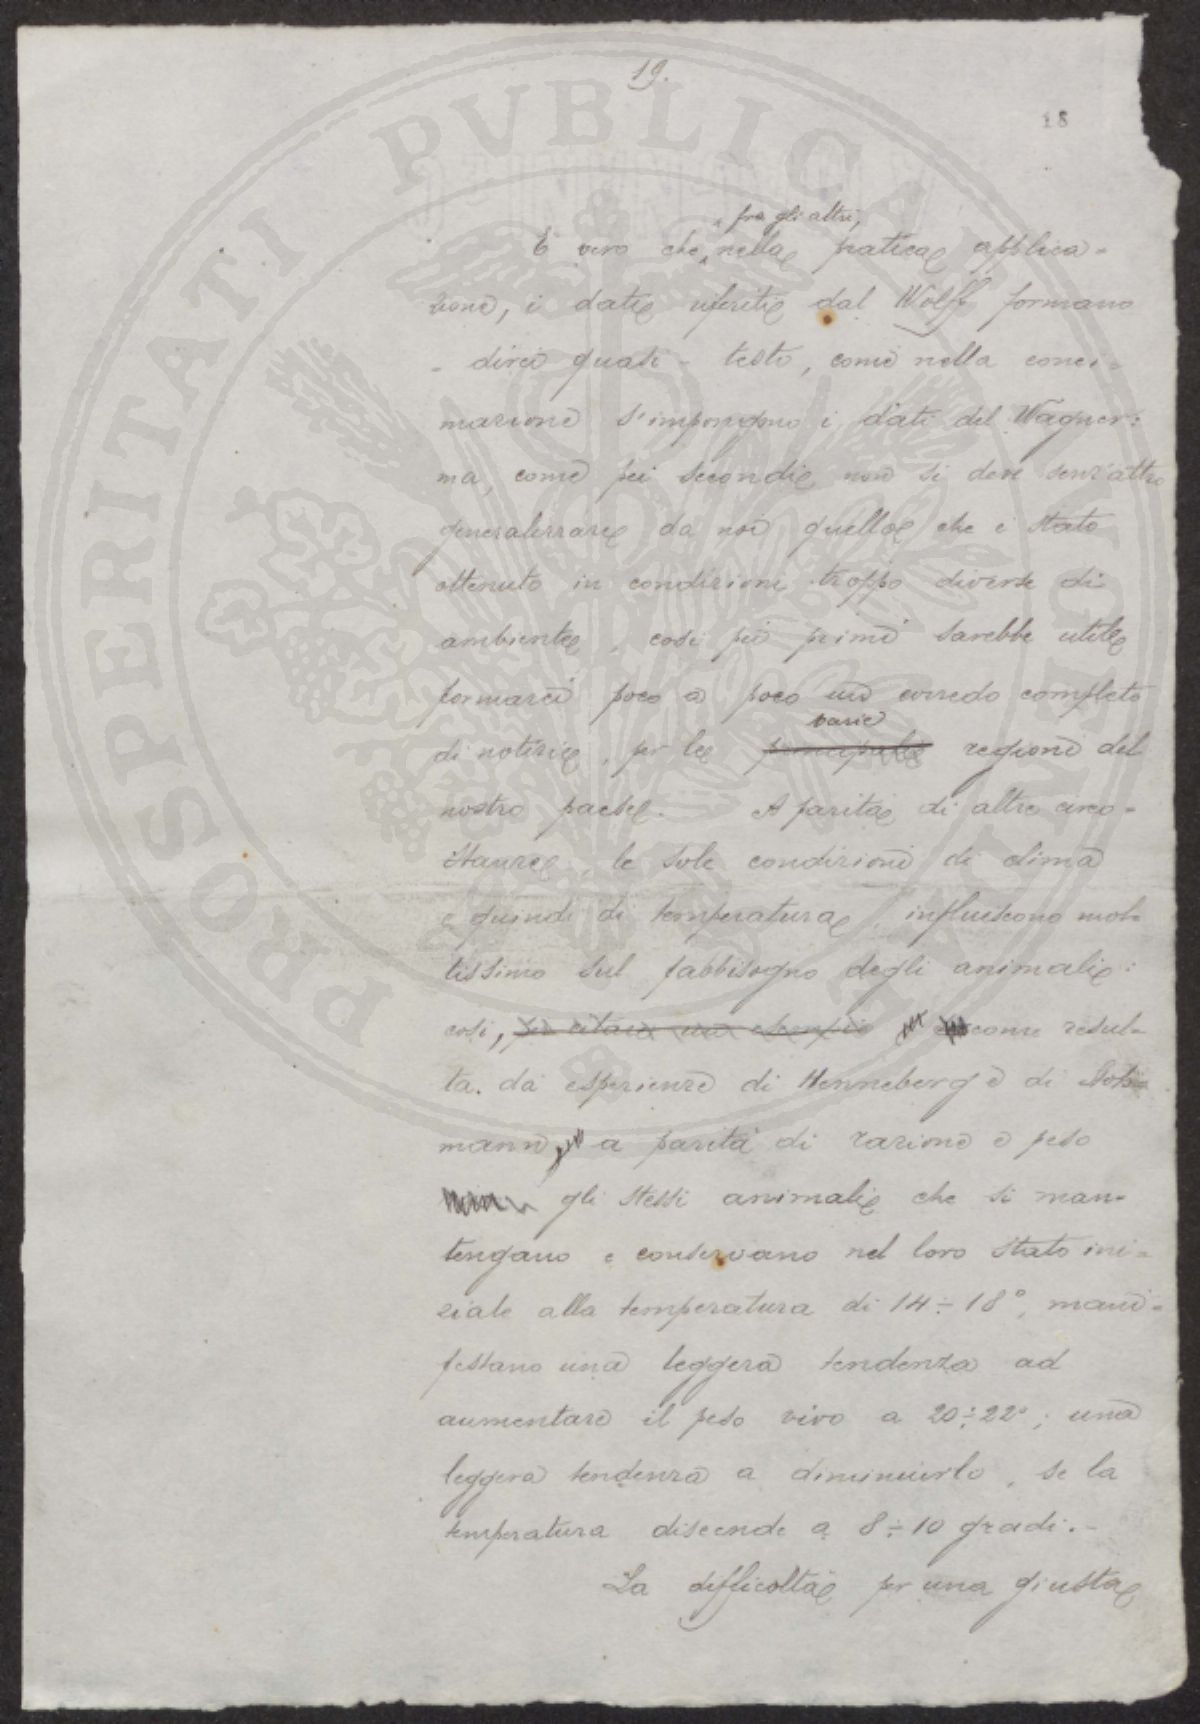 19.
18
fra gli altri,
È vero che, nella pratica applica-
zione, i dati riferiti dal Wolff formano
direi quasi - testo, come nella conci-
mazione s'impongono i dati del Wagner:
ma, come pei secondi non si deve senz'altro
generalizzare da noi quello che è stato
ottenuto in condizioni troppo diverse di
ambiente, così pei primi sarebbe utile
formarci poco a poco un corredo completo
varie
di notizie, per le principali regioni del
nostro paese. A parità di altre circo-
stanze, le sole condizioni di clima
e quindi di temperatura, influiscono mol-
tissimo sul fabbisogno degli animali:
così, per citare un esempio come resul-
ta da esperienze di Henneberg e di
mann a parità di razione e peso
gli stessi animali che si man-
tengano e conservano nel loro stato ini-
ziale alla temperatura di 14÷18°, mani-
festano una leggera tendenza ad
aumentare il peso vivo a 20÷22°; una
leggera tendenza a diminuirlo, se la
temperatura discende a 8÷10 gradi.-
La difficoltà per una giusta
PROSPERITATI PVBLICAE